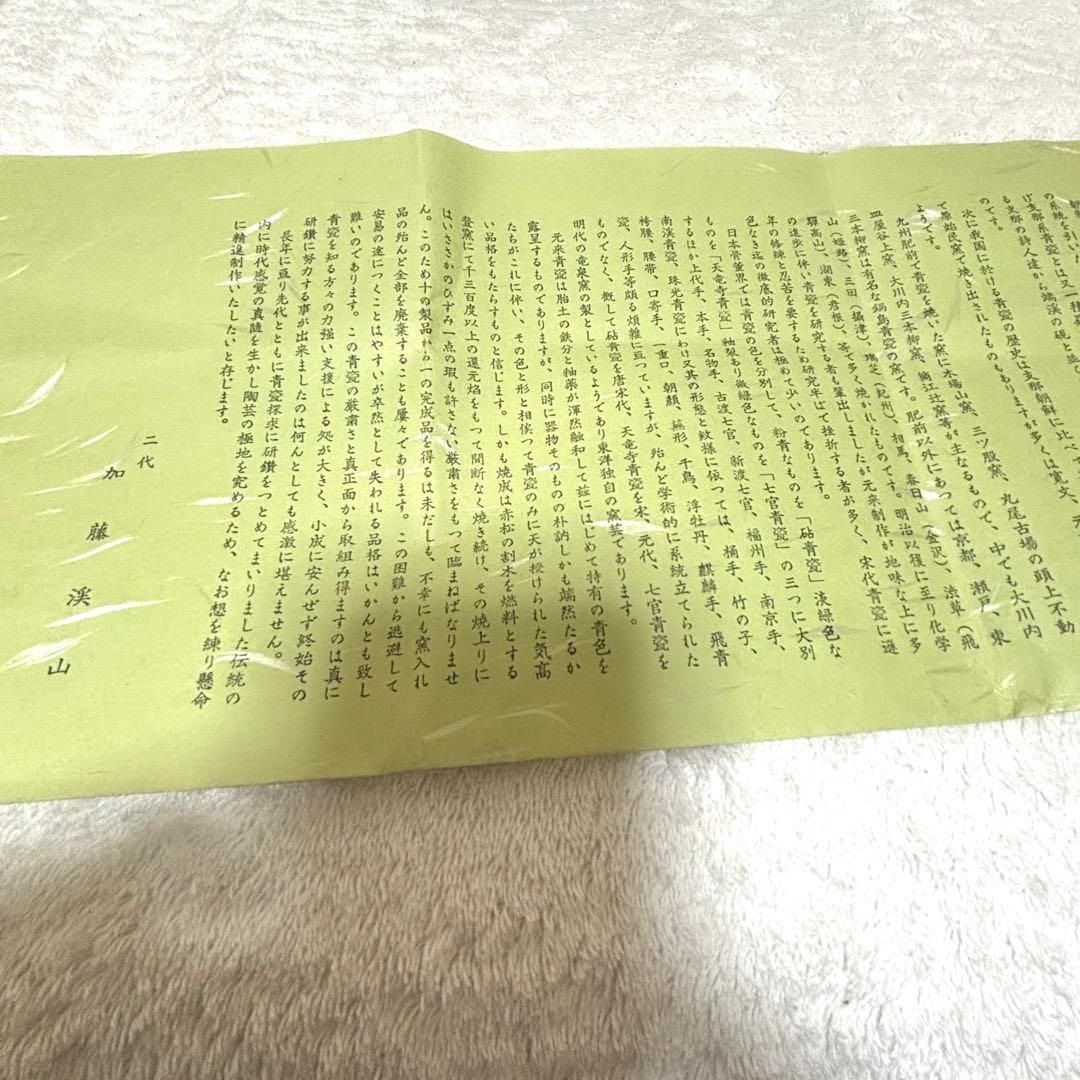 の系統を引いた
げ支那系青瓷とは又一種
る支那の詩人達から端渓の硯と並
のです。
次に我国に於ける青瓷の歴史は支那朝鮮に比べて
て原始民窯で焼き出されたものもありますが多くは寛文、元
ようです。
九州肥前で青瓷を焼いた窯に木場山窯、三ツ股窯、丸尾古場の頭上不動
皿屋谷上窯、大川内三本柳窯、樋江辻窯等が主なるもので、中でも大川内
三本柳窯は有名な鍋島青瓷の窯です。肥前以外にあつては京都、瀬戸、東
山(姫路)、三田(摂津)、瑞芝(紀州)、相馬、春日山(金沢)、渋草(飛
驒高山)、湖東(彦根)、等で多く焼かれたものです。明治以後に至り化学
の進歩に伴い青瓷を研究する者も輩出しましたが元来制作が地味な上に多
年の修練と忍苦を要するため研究半ばで挫折する者が多く、宋代青瓷に遜
色なき迄の徹底的研究者は極めて少いのであります。
日本骨董界では青瓷の色を分別して、粉青なものを「砧青瓷」淡緑色な
ものを「天竜寺青瓷」釉裂あり微緑色なものを「七官青瓷」の三つに大別
するほか上代手、本手、名物手、古渡七官、新渡七官、福州手、南京手、
南渓青瓷、珠光青瓷にわけ又其の形態と紋様に依つては、桶手、竹の子、
袴腰、腰帯、口寄手、一重口、朝顔、蕪形、千鳥、浮牡丹、麒麟手、飛青
瓷、人形手等頗る煩雑に亘つていますが、殆んど学術的に系統立てられた
ものでなく、概して砧青瓷を唐宋代、天竜寺青瓷を宋元代、七官青瓷を
明代の竜泉窯の製としているようであり東洋独自の窯芸であります。
元来青瓷は胎土の鉄分と釉薬が渾然融和して茲にはじめて特有の青色を
露呈するものでありますが、同時に器物そのもの朴訥しかも端然たるか
たちがこれに伴い、その色と形と相俟つて青瓷のみに天が授けられた気高
い品格をもたらすものと信じます。しかも焼成は赤松の割木を燃料とする
登窯にて千三百度以上の還元焰をもつて間断なく焼き続け、その焼上りに
はいささかのひずみ一点の瑕も許さない厳粛さをもつて臨まねばなりませ
ん。このため十の製品から一の完成品を得るは未だしも、不幸にも窯入れ
品の殆んど全部を廃棄することも屢々であります。この困難から逃避して
安易の途につくことはやすいが卒然として失われる品格はいかんとも致し
難いのであります。この青瓷の厳粛さと真正面から取組み得ますのは真に
青瓷を知る方々の力強い支援による処が大きく、小成に安んぜず終始その
研鑽に努力する事が出来ましたのは何んとしても感激に堪えません。
長年に亘り先代とともに青瓷探求に研鑽をつとめてまいりました伝統の
内に時代感覚の真髄を生かし陶芸の極地を究めるため、なお想を練り懸命
に精進制作いたしたいと存じます。
二代
加藤渓山